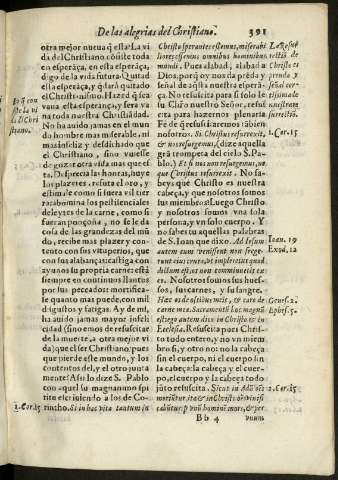 De las alegrias del Christiano. 391
otra mejor nueva q̃ esta. La vi
da del Christiano cõsiste toda
en esperãça, en esta esperãça,
digo de la vida futura. Quitad
essa esperãça, y q̃dará quitado
el Christianismo. Hazed q̃ sea
vana esta esperança, y sera va
na toda nuestra Christiãdad.
No ha auido jamas en el mun
do hombre mas miserable, ni
mas infeliz y desdichado que
el Christiano, sino vuiesse
de gozar otra vida mas que es
ta. Desprecia las honras, huye
los plazeres, refuta el oro, y
estimale como si fuera vil tier
ra: abomina los pestilenciales
deleytes de la carne, como si
fueran ponçoña, no se le da
cosa de las grandezas del mũ
do, recibe mas plazer y con-
tento con sus vituperios, que
con sus alabanças: castiga con
ayunos su propria carne: está
siempre en continuos llantos
por sus peccados: mortifica-
se quanto mas puede con mil
disgustos y fatigas. Ay de mi,
ha auido jamas mayor infeli
cidad (sino emos de resuscitar
de la muerte, a otra mejor vi
da) que el ser Christiano, pues
que pierde este mundo, y los
contentos del, y el otro junta
mente? Assi lo dize S. Pablo
con aquel su magnanimo spi
ritu escriuiendo a los de Co-
rintho. Si in hac vita tantum in
Io q̃ con
siste la vi
da del Chri
stiano.
1. Cor. 15
Christo sperantes estimus, miserabi
liores estimus omnibus hominibus
mundi. Pues alabad, alabad a
Dios, porq̃ y nos da prẽda y
señal de esta nuestra esperan-
ça. No resuscita para si solo le
su Chr̃o nuestro Señor, resus
cita para hazernos plenaria
Fè de q̃ resuscitaremos tãbien
nosotros. Si Christus resurrexit,
& nos resurgemus, (dize aquella
grã trompeta del cielo S. Pa-
blo.) Et si nos non resurgimus, ne
que Christus resurrexit. No sa-
beys que Christo es nuestra
cabeça, y que nosotros somos
sus miembros? Luego Christo
y nosotros somos vna sola
persona, y vn solo cuerpo. Y
no sabeys tu aquellas palabras
de S. Ioan que dixo. Ad Iesum
autem cum venissent non frege-
runt eius crura, vt impleretur quod
dictum est, os non comminuetis ex
eo. Nosotros somos sus hues-
sos, sus carnes, y su sangre.
Hæc os de ossibus meis, & caro de
carne mea. Sacramentũ hoc magnũ
est, ego autem dico in Christo & in
Ecclesia. Resuscita pues Christ-
to todo entero, y no vn miem
bro si, y otro no: no la cabeça
sin el cuerpo, ni el cuerpo sin
la cabeça, sino la cabeça y el
cuerpo, el cuerpo y la cabeça todo
jũto resuscita. Sicut in Adã oẽs
moriũtur, ita & in Christo oẽs viuifi
cabũtur: p vnũ hominẽ mors, & per
1. Cor. 15
Ioan. 19
Exod. 12
Genes. 2.
Ephes. 5.
1. Cor. 15
Bb 4
vnum